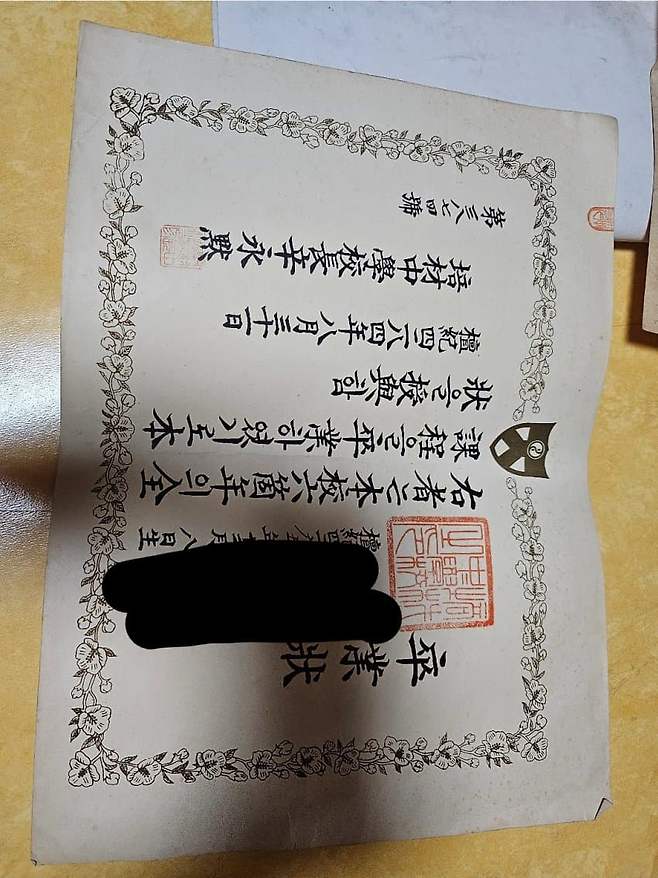 卒業狀
月八日生
右者는本校六箇年의全
課程을卒業하였기로本
狀을授與함
檀紀四二八四年八月三十一日
培材中學校長辛永默
第三八七四號